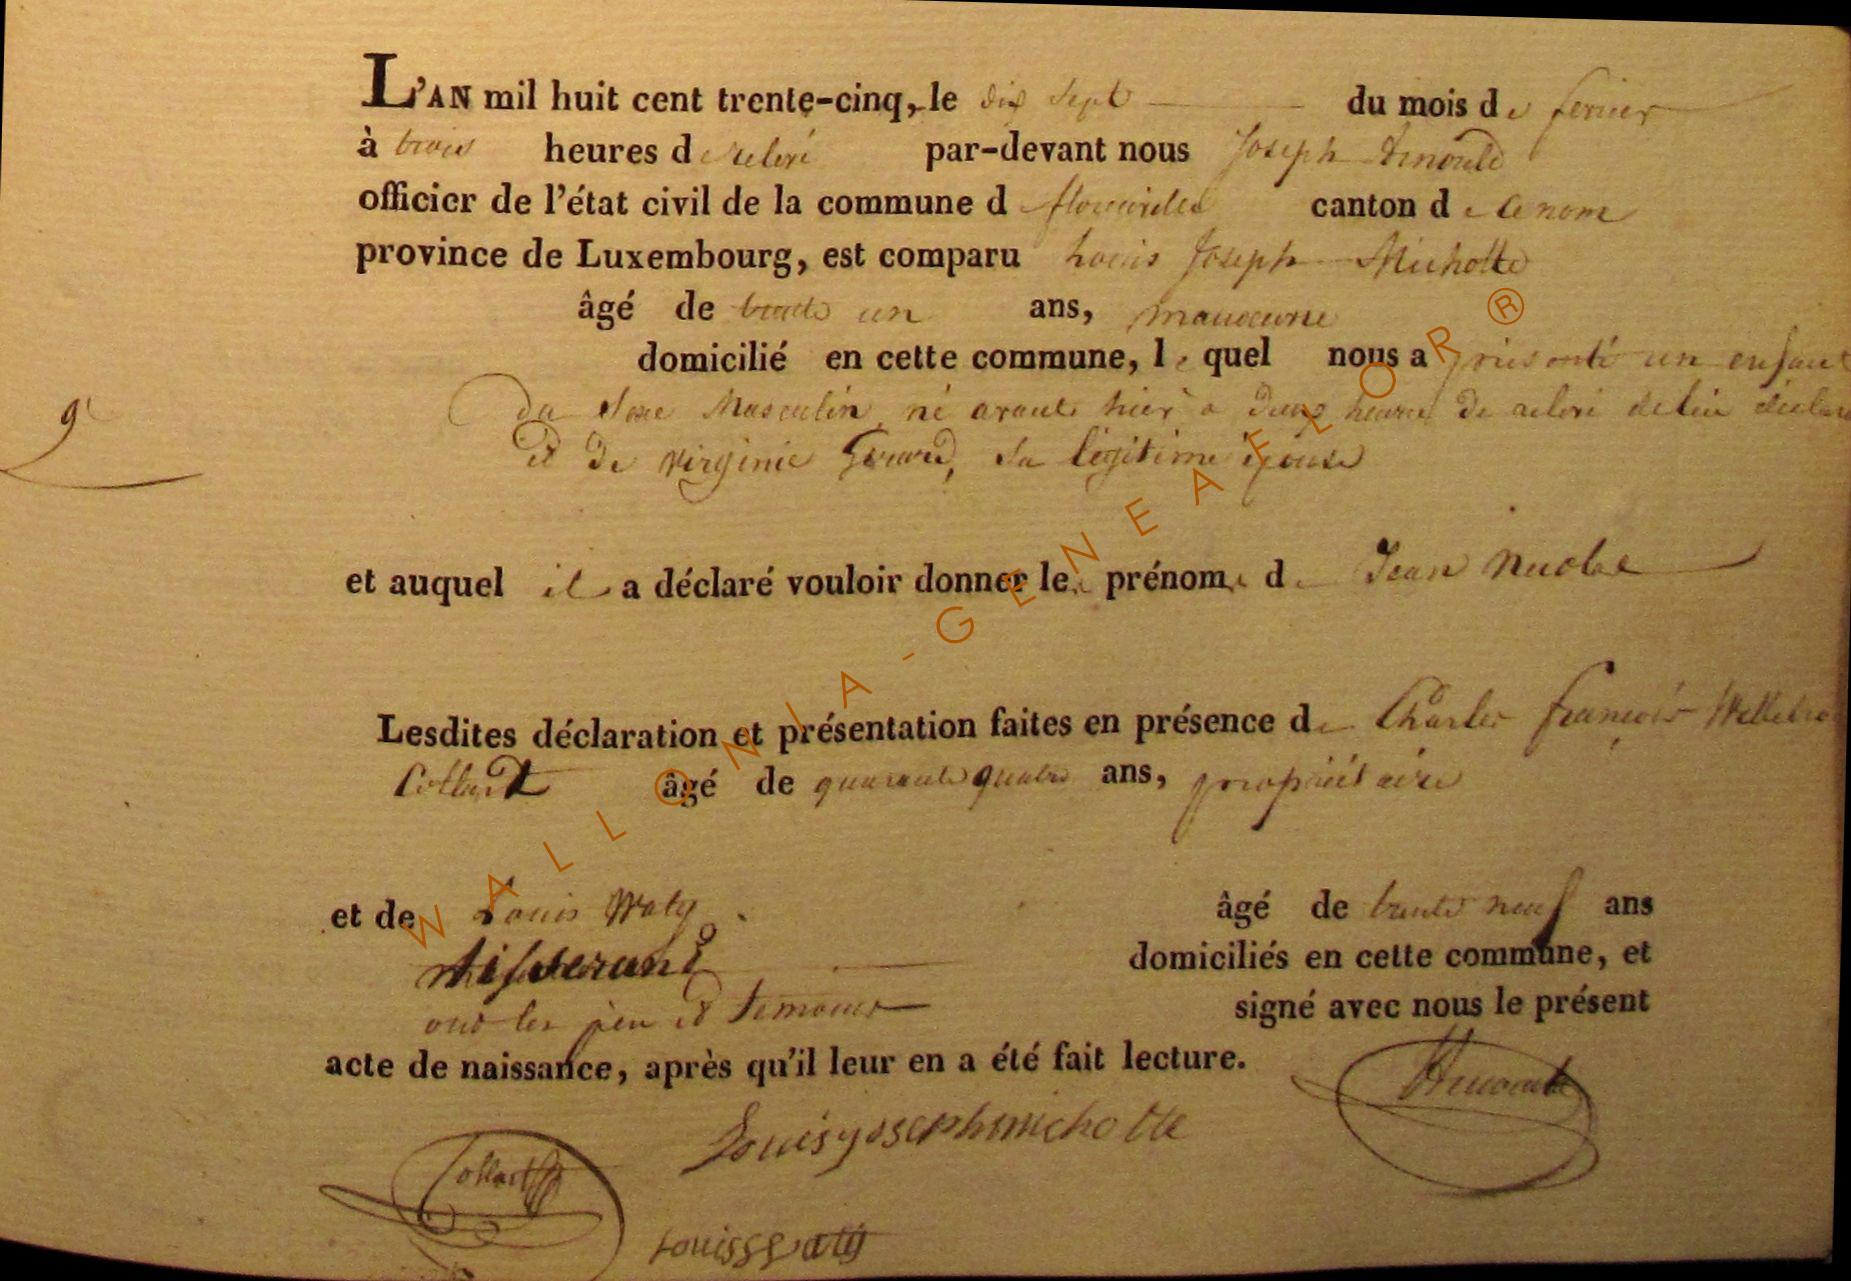 L'AN mil huit cent trente-cinq, le dix sept du mois de fevrier
à trois heures de relevé par-devant nous Joseph Arnould
officier de l'état civil de la commune d canton de ce nom
province de Luxembourg, est comparu Louis Joseph Michotte
âgé de trente un ans, manoeuvre
domicilié en cette commune, lequel nous a présenté un enfant
9e
du sexe Masculin, né avant hier a deux heures de relevé de lui déclarant
et de virginie Gerard, sa légitime épouse
et auquel il a déclaré vouloir donner les prénoms de Jean Nicolas
Lesdites déclaration et présentation faites en présence de Charles françois
Collart âgé de quarante quatre ans, propriétaire
et de Louis Waty âgé de trente neuf ans
tisserand domiciliés en cette commune, et
ont les père et temoins signé avec nous le présent
acte de naissance, après qu'il leur en a été fait lecture.
Arnould
Louis yosseph michotte
Collart
Louiss Watij
WALLONIA-GENEAFLOR ®